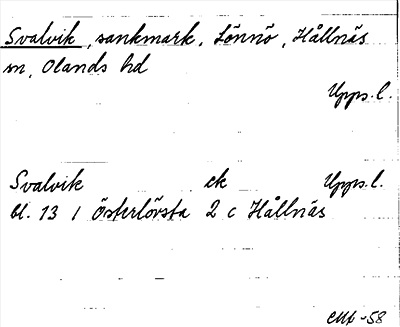 Svalvik, sankmark, Lönnö, Hållnäs
sn, Olands hd
Upps. l.
Svalvik ek Upps. l.
bl. 13 1 Österlövsta 2 c Hållnäs
-58